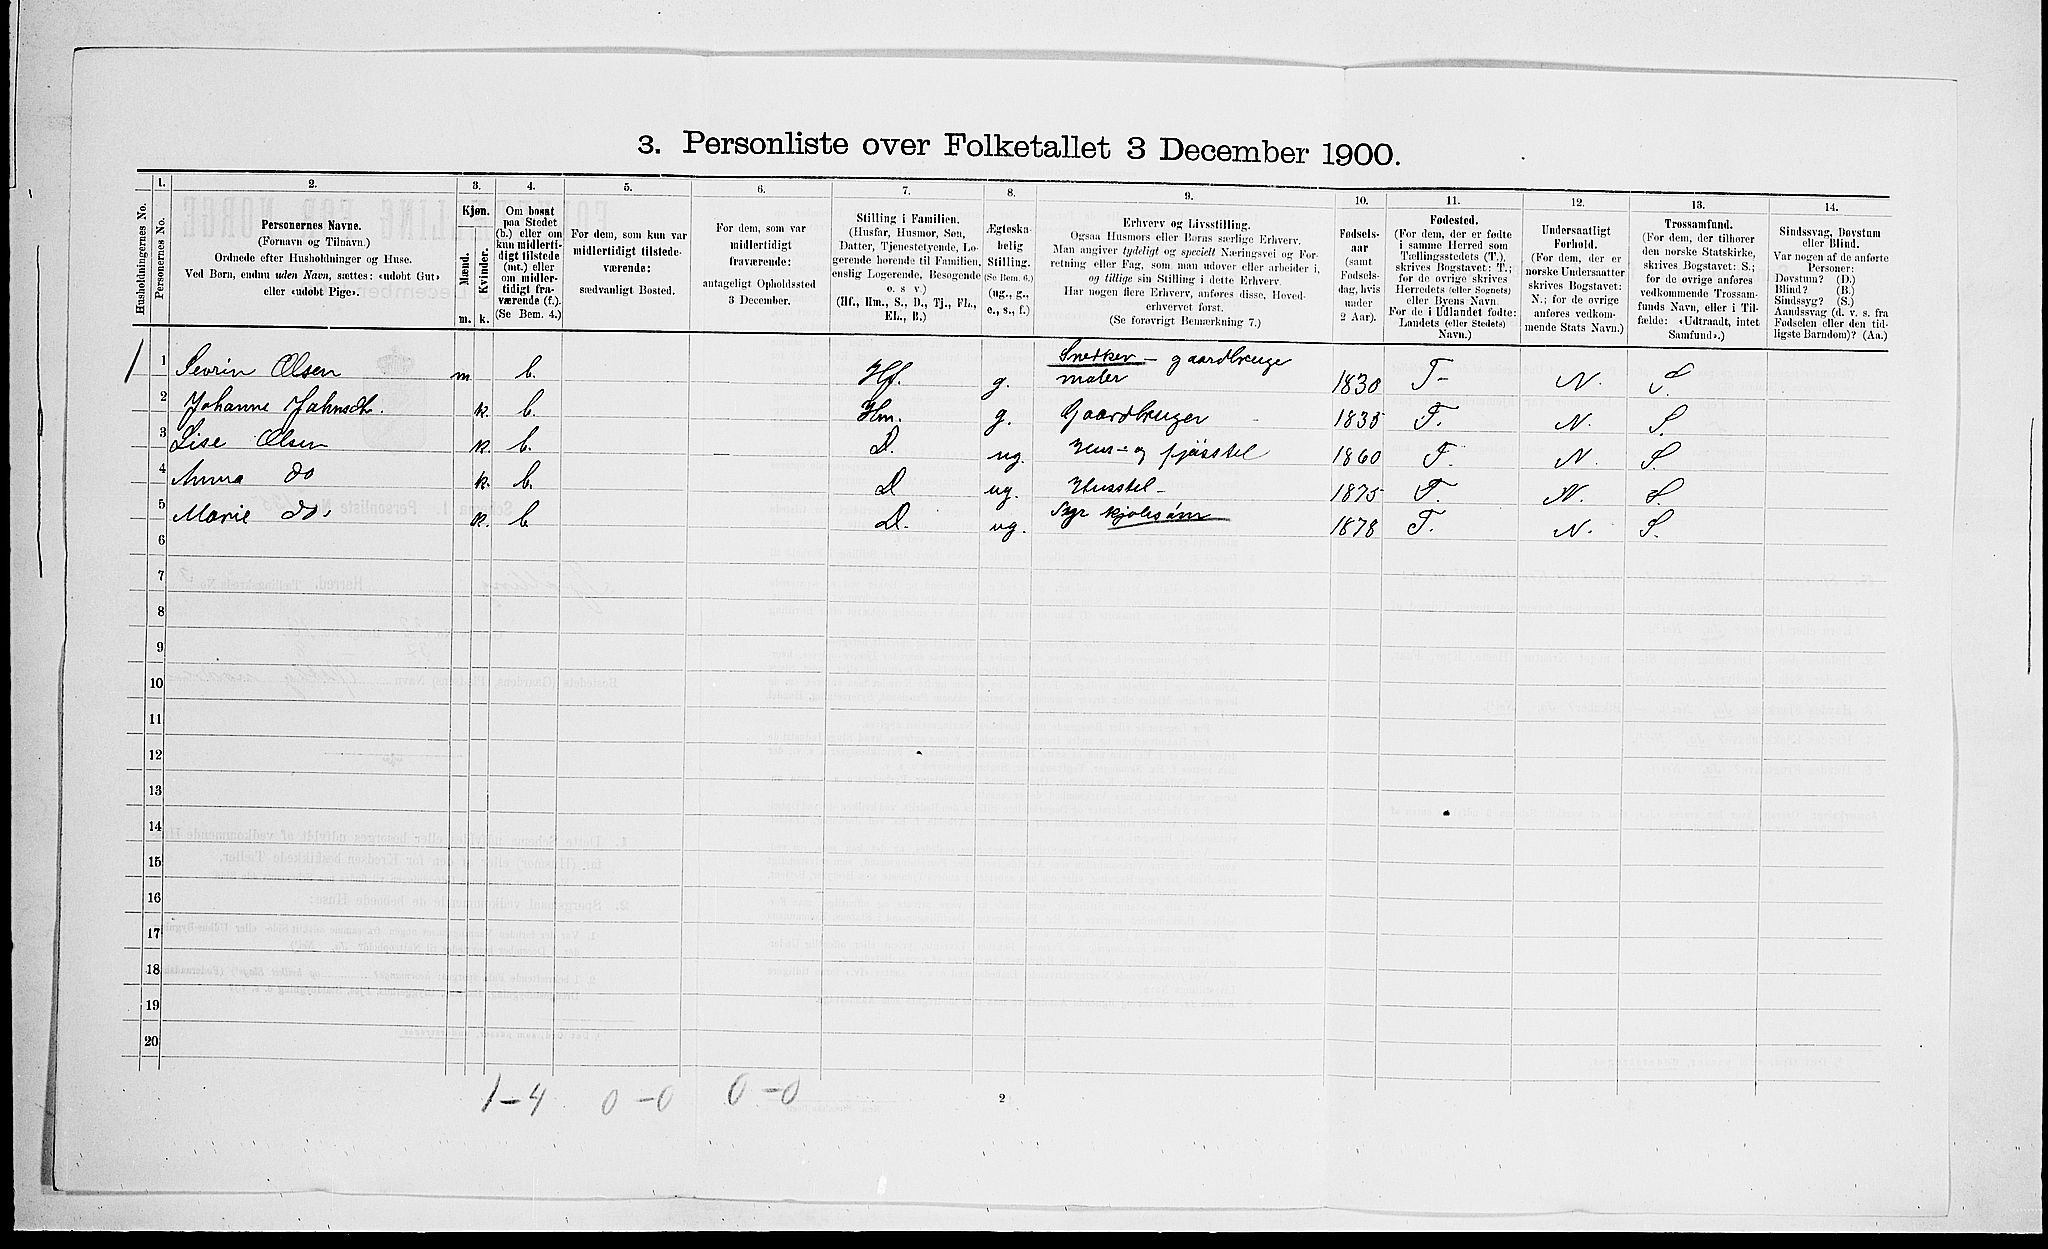 3. Personliste over Folketallet 3 December 1900.
1. 2. 3. 4. 5. 6. 7. 8. 9. 10. 11. 12. 13. 14.
Husholdningernes No.
Personernes No.
Personernes Navne.
(Fornavn og Tilnavn.)
Ordnede efter Husholdninger og Huse.
Ved Børn, endnu uden Navn, sættes: «udøbt Gut»
eller «udøbt Pige».
Kjøn.
Mænd.
Kvinder.
m. k.
Om bosat
paa Stedet
(b.) eller om
kun midlerti-
digt tilstede
(mt.) eller
om midler-
tidigt fra-
værende (f.).
(Se Bem. 4.)
For dem, som kun var
midlertidigt tilstede-
værende:
sædvanligt Bosted.
For dem, som var
midlertidigt
fraværende:
antageligt Opholdssted
3 December.
Stilling i Familien.
(Husfar, Husmor, Søn,
Datter, Tjenestetyende, Lo-
gerende hørende til Familien,
enslig Logerende, Besøgende
o. s. v.)
(Hf., Hm., S., D., Tj., FL.,
EL., B.)
Ægteska-
belig
Stilling.
(Se Bem. 6.)
(ug., g.,
e., s., f.)
Erhverv og Livsstilling.
Ogsaa Husmors eller Børns særlige Erhverv.
Man angiver tydeligt og specielt Næringsvei og For-
retning eller Fag, som man udøver eller arbeider i,
og tillige sin Stilling i dette Erhverv.
Har nogen flere Erhverv, anføres disse, Hoved-
erhvervet først.
(Se forøvrigt Bemærkning 7.)
Fødsels-
aar
(samt
Fødsels-
dag, hvis
under
2 Aar).
Fødested.
(For dem, der er fødte
i samme Herred som
Tællingsstedets (T.),
skrives Bogstavet: T.;
for de øvrige skrives
Herredets (eller Sognets)
eller Byens Navn.
For de i Udlandet fødte:
Landets (eller Stedets)
Navn.)
Undersaatligt
Forhold.
(For dem, der er
norske Undersaatter
skrives Bogstavet:
N.; for de øvrige
anføres vedkom-
mende Stats Navn.)
Trossamfund.
(For dem, der tilhører
den norske Statskirke,
skrives Bogstavet: S.;
for de øvrige anføres
vedkommende Trossam-
funds Navn, eller i Til-
fælde: «Udtraadt, intet
Samfund».)
Sindssvag, Døvstum
eller Blind.
Var nogen af de anførte
Personer:
Døvstum? (D.)
Blind? (B.)
Sindssyg? (S.)
Aandssvag (d. v. s. fra
Fødselen eller den tid-
ligste Barndom)? (Aa.)
1 1 Sevrin Olsen m b. Hf. g. Snedker – gaardbruge
maler 1830 T- N. S.
2 Johanne k. b. Hm. g. Gaardbruger 1835 T. N. S.
3 Lise Olsen k. b. D. ug. Hus- og fjøsstel 1860 T. N. S.
4 Anna do k. b. D ug. Husstel - 1875 T. N. S.
5 Marie do. k. b D. ug. Syr kjolesøm 1878 T. N. S.
6
7
8
9
10
11
12
13
14
15
16
17
18
19
20
1-4 0-0 0-0
2